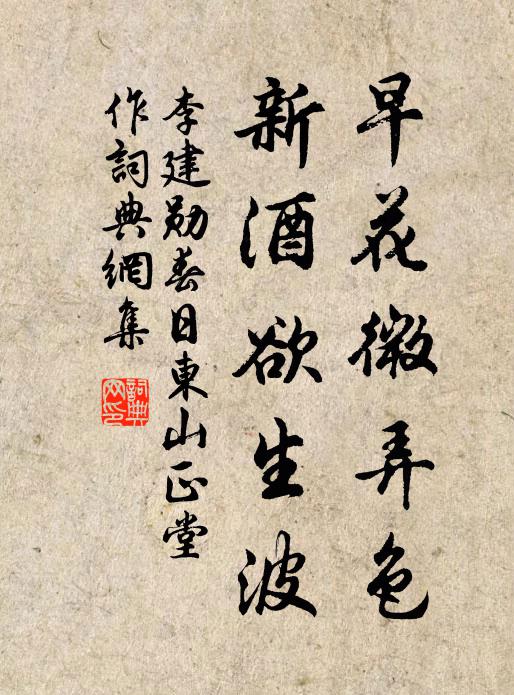 早花微弄色
新酒欲生波
李建勋春日東山正堂
作詞典網集
詞典
网印